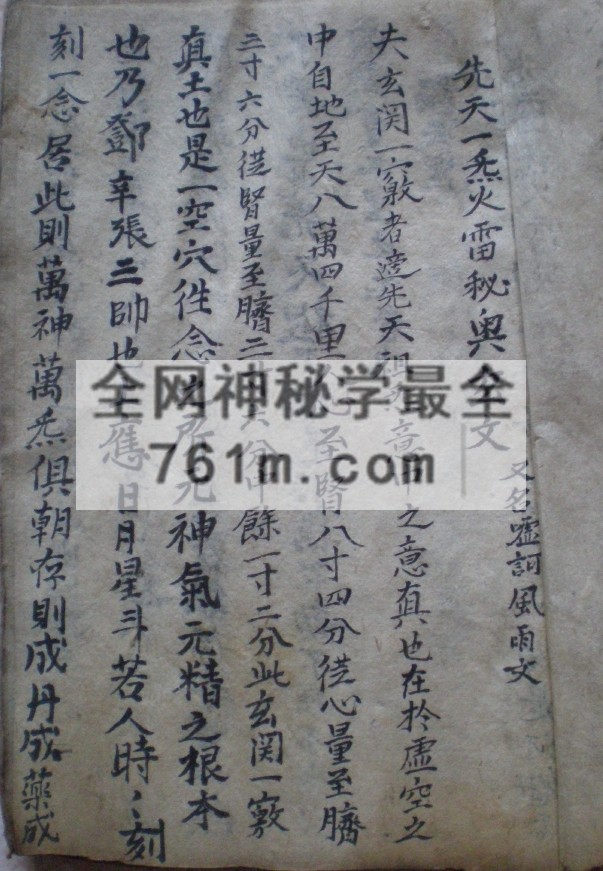 先天一炁火雷秘奥文
又名嘘訶風雨文
夫玄関一竅者遶先天祖意之意真也在扵虚空之
中自地至天八萬四千里至腎八寸四分從心量至臍
三寸六分従腎量至臍二六分餘一寸二分此玄関一竅
真土也是一空穴性念所元神氣元精之根本
也乃鄧辛張三帥也應日月星斗若人時〻刻
刻一念居此則萬神萬炁俱朝存則成丹成藥成
全网神秘学最全
761m.com